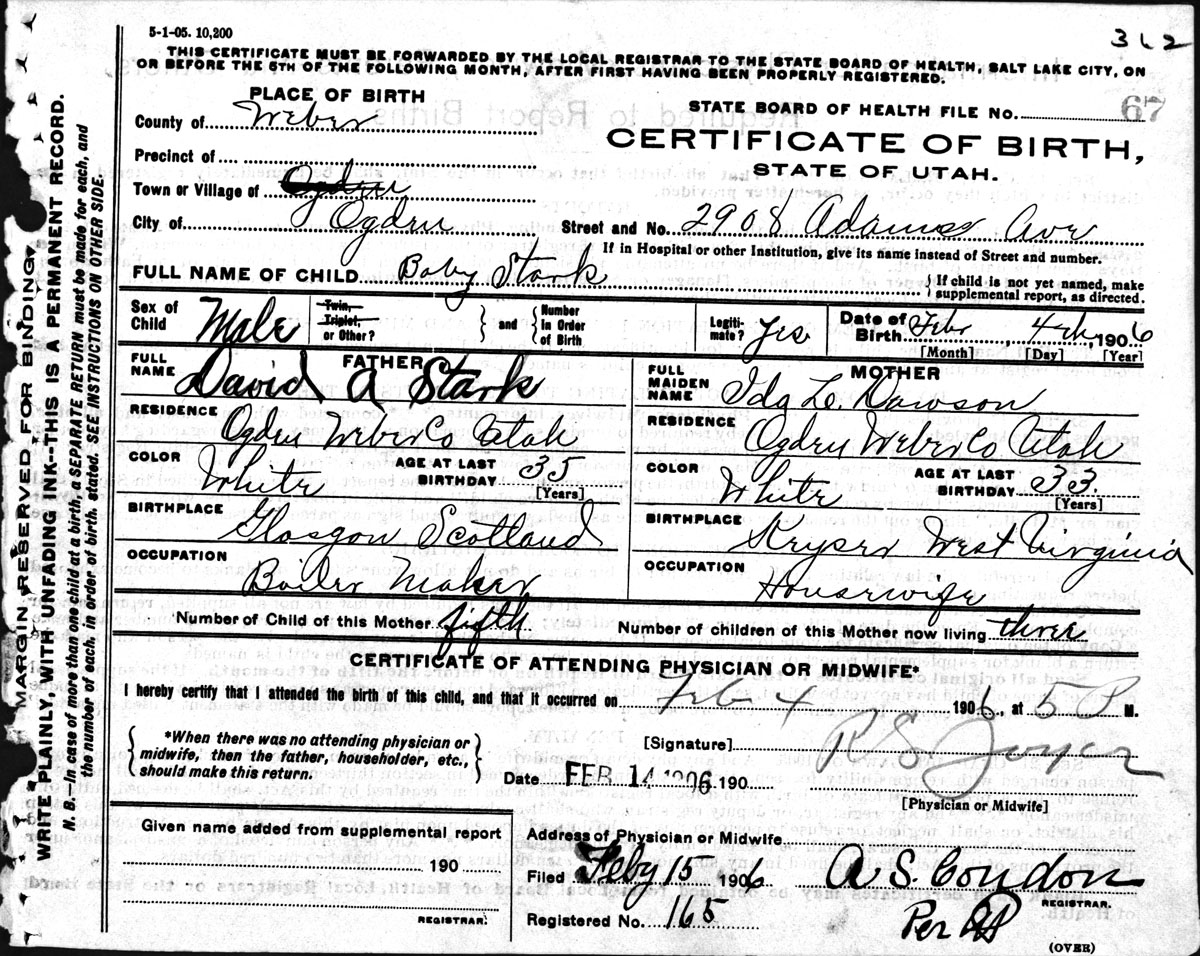 5-1-05. 10,200
312
THIS CERTIFICATE MUST BE FORWARDED BY THE LOCAL REGISTRAR TO THE STATE BOARD OF HEALTH, SALT LAKE CITY, ON
OR BEFORE THE 5TH OF THE FOLLOWING MONTH, AFTER FIRST HAVING BEEN PROPERLY REGISTERED.
MARGIN RESERVED FOR BINDING.
WRITE PLAINLY, WITH UNFADING INK--THIS IS A PERMANENT RECORD.
N. B. In case of more than one child at a birth, a SEPARATE RETURN must be made for each, and
the number of each, in order of birth, stated. SEE INSTRUCTIONS ON OTHER SIDE.
PLACE OF BIRTH
County of Weber
Precinct of
Town or Village of Ogden
City of Ogden
STATE BOARD OF HEALTH FILE No. 67
CERTIFICATE OF BIRTH,
STATE OF UTAH.
Street and No. 2908 Adams Ave
If in Hospital or other Institution, give its name instead of Street and number.
FULL NAME OF CHILD Baby Stark
{ If child is not yet named, make
supplemental report, as directed.
Sex of Child Male
Twin, Triplet, or Other? } and { Number In Order of Birth
Legiti-mate? Yes
Date of Birth Feby, 4th 1906
[Month] [Day] [Year]
FATHER
FULL NAME David A Stark
RESIDENCE Ogden Weber Co Utah
COLOR White AGE AT LAST BIRTHDAY 35
[Years]
BIRTHPLACE Glasgow Scotland
OCCUPATION Boiler maker
MOTHER
FULL MAIDEN NAME Ida L. Dawson
RESIDENCE Ogden Weber Co Utah
COLOR White AGE AT LAST BIRTHDAY 33
[Years]
BIRTHPLACE Keyser West Virginia
OCCUPATION Housewife
Number of Child of this Mother fifth Number of children of this Mother now living three
CERTIFICATE OF ATTENDING PHYSICIAN OR MIDWIFE*
I hereby certify that I attended the birth of this child, and that it occurred on Feb 4 1906, at 5 P M.
{ *When there was no attending physician or
midwife, then the father, householder, etc.,
should make this return. }
[Signature] R S Joyce
Date FEB 14 1906 190
[Physician or Midwife]
Given name added from supplemental report
190
REGISTRAR.
Address of Physician or Midwife
Filed Feby 15 1906 A. S. Condon
REGISTRAR.
Registered No. 165 Per
(OVER)